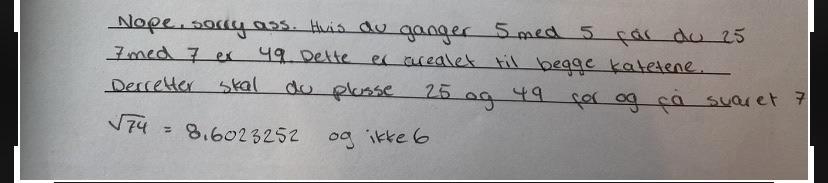 Nope, sorry ass. Hvis du ganger 5 med 5 får du 25
7 med 7 er 49. Dette er arealet til begge katetene.
Deretter skal du plusse 25 og 49 for og få svaret 7
√74 = 8,6023252 og ikke 6